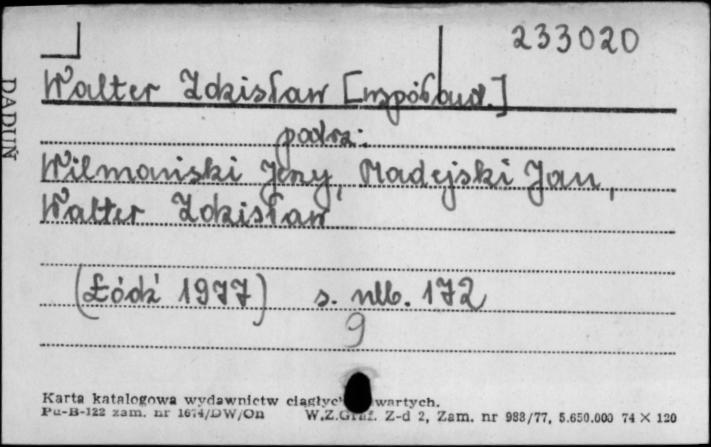 233020
Walter Zdzisław [współaut.]
patrz:
Wilmański Jerzy, Madejski Jan,
Walter Zdzisław
(Łódź 1977) s. nlb. 172
9
Karta katalogowa wydawnictw ciągłyc wartych.
Pu-B-122 zam. nr 1674/DW/On W.Z.Graf. Z-d 2, Zam. nr 988/77, 5.650.000 74 × 120
DADUŃ